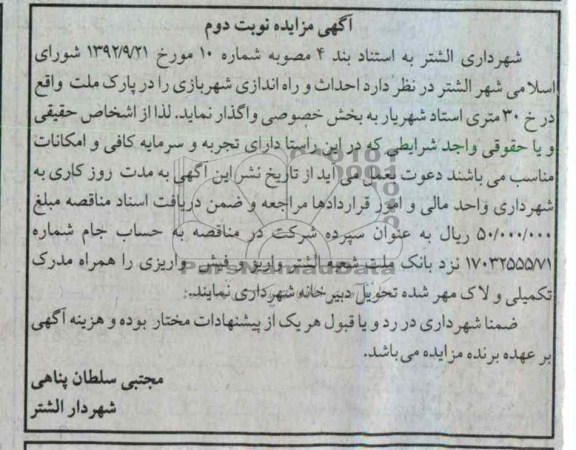 آگهی مزایده نوبت دوم
شهرداری الشتر به استناد بند ۴ مصوبه شماره ۱۰ مورخ ۱۳۹۲/۹/۲۱ شورای
اسلامی شهر الشتر در نظر دارد احداث و راه اندازی شهربازی را در پارک ملت واقع
در خ ۳۰ متری استاد شهریار به بخش خصوصی واگذار نماید. لذا از اشخاص حقیقی
و یا حقوقی واجد شرایطی که در این راستا دارای تجربه و سرمایه کافی و امکانات
مناسب می باشند دعوت بعمل می آید از تاریخ نشر این آگهی به مدت روز کاری به
شهرداری واحد مالی و امور قراردادها مراجعه و ضمن دریافت اسناد مناقصه مبلغ
۵۰/۰۰۰/۰۰۰ ریال به عنوان سپرده شرکت در مناقصه به حساب جام شماره
۱۷۰۳۲۵۵۵/۷۱ نزد بانک ملت شعبه الشتر واریز و فیش واریزی را همراه مدرک
تکمیلی و لاک مهر شده تحویل دبیرخانه شهرداری نمایند.
ضمنا شهرداری در رد و یا قبول هر یک از پیشنهادات مختار بوده و هزینه آگهی
بر عهده برنده مزایده می باشد.
مجتبی سلطان پناهی
شهردار الشتر
ParsNamadData